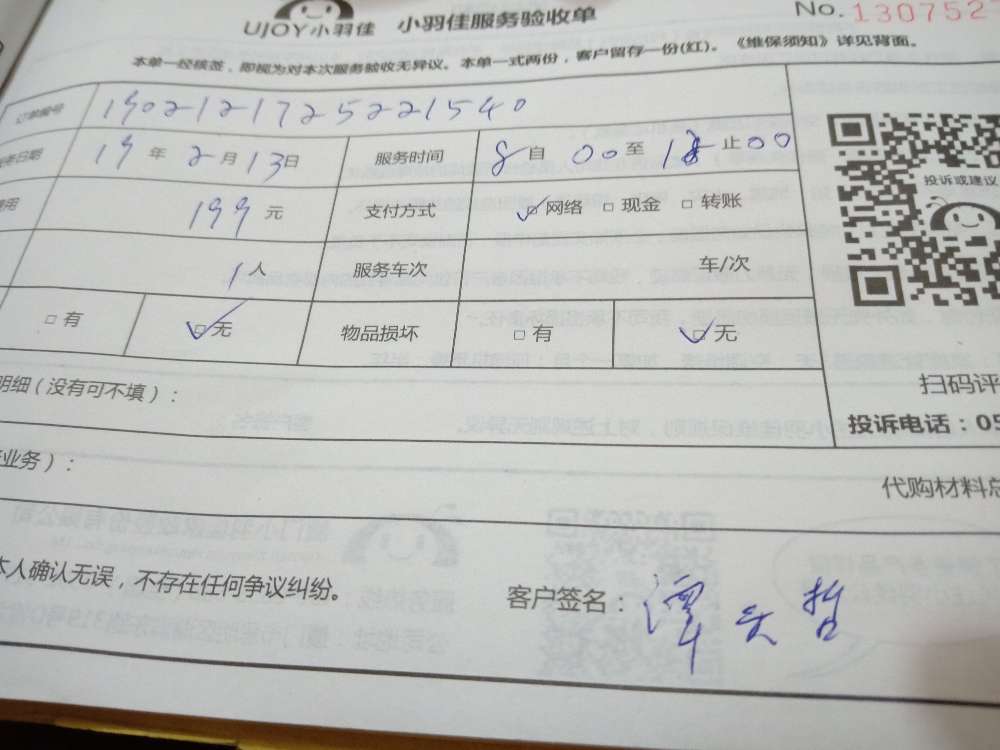 UJOY小羽佳 小羽佳服务验收单 No. 130752
本单一经核签，即视为对本次服务验收无异议。本单一式两份，客户留存一份(红)。《维保须知》详见背面。
订单编号 1902121725221540
日期 19 年 2 月 13 日 服务时间 8 自 00 至 止 00
199 元 支付方式 网络 □ 现金 □ 转账
1 人 服务车次 车/次
□ 有 □ 无 物品损坏 □ 有 □ 无
投诉或建议
明细（没有可不填）：
扫码评
投诉电话：05
业务）：
代购材料总
本人确认无误，不存在任何争议纠纷。
客户签名：